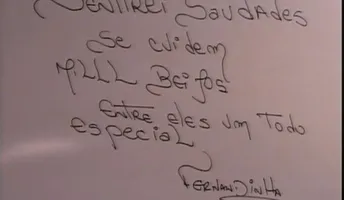 SENTIREI SAUDADES
SE CUIDEM
MILLL BEIJOS
ENTRE ELES UM TODO
ESPECIAL
FERNANDINHA